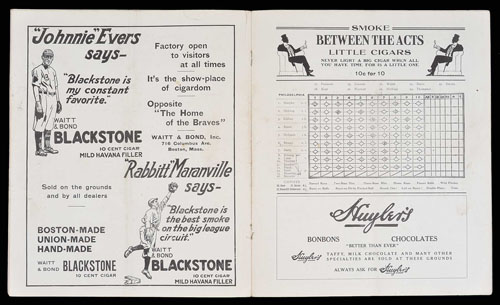 "Johnnie" Evers
says-
"Blackstone is
my constant
favorite."
WAITT
& BOND
BLACKSTONE
10 CENT CIGAR
MILD HAVANA FILLER
Factory open
to visitors
at all times
It's the show-place
of cigardom
Opposite
"The Home
of the Braves"
WAITT & BOND, Inc.
716 Columbus Ave.
Boston, Mass.
"Rabbitt" Maranville
says-
Sold on the grounds
and by all dealers
"Blackstone is
the best smoke
on the big league
circuit."
BOSTON-MADE
UNION-MADE
HAND-MADE
WAITT
& BOND BLACKSTONE
10 CENT CIGAR
WAITT
& BOND
BLACKSTONE
10 CENT CIGAR
MILD HAVANA FILLER
SMOKE
BETWEEN THE ACTS
LITTLE CIGARS
NEVER LIGHT A BIG CIGAR WHEN ALL
YOU HAVE TIME FOR IS A LITTLE ONE
10c for 10
PHILADELPHIA
Huyler's
BONBONS CHOCOLATES
"BETTER THAN EVER"
Huyler's TAFFY, MILK CHOCOLATE AND MANY OTHER
SPECIALTIES ARE SOLD AT THESE GROUNDS
ALWAYS ASK FOR Huyler's